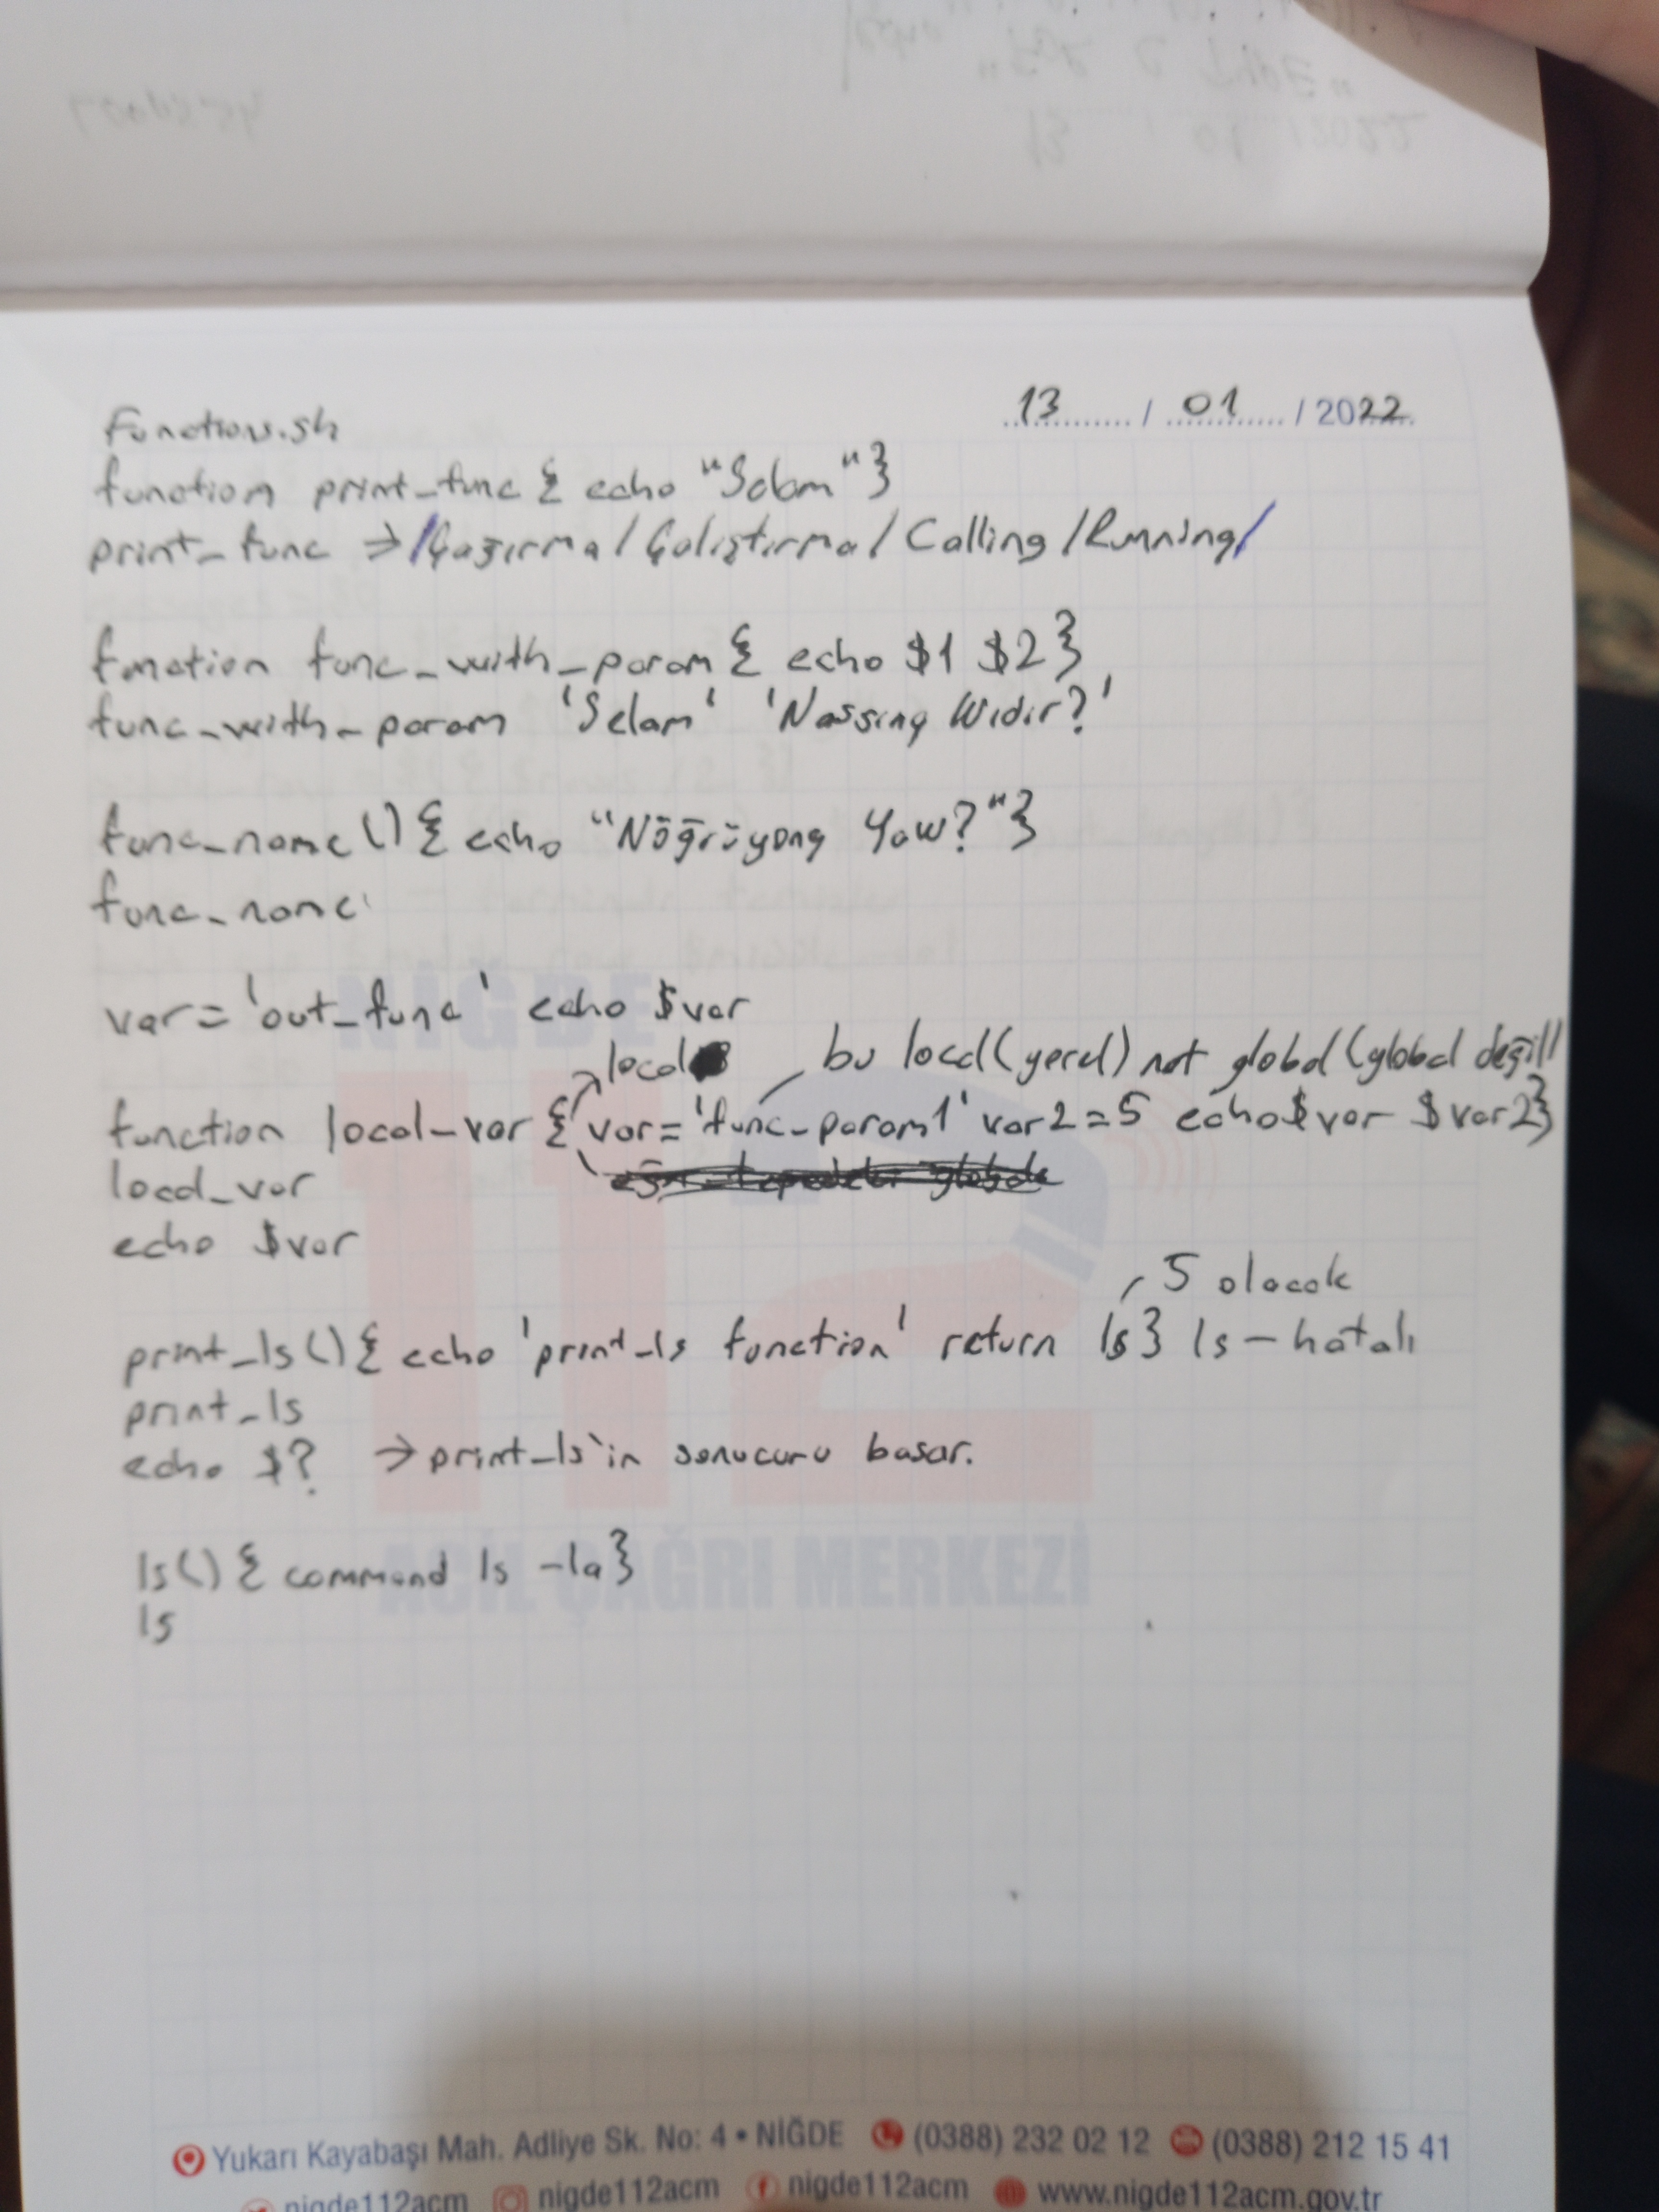 13 / 01 / 2022
Functions.sh
function print_func { echo "Selam" }
print_func → /Çağırma/Çalıştırma/Calling/Running/
function func_with_param { echo $1 $2 }
func_with_param 'Selam' 'Nassıng Widir?'
func_name () { echo "Nöğrüyong Yaw?" }
func_name
var = 'out_func' echo $var
local bu local (yerel) not global (global değil)
function local_var { var = 'func_param1' var2 = 5 echo $var $var2 }
local_var
echo $var
5 olacak
print_ls () { echo 'print_ls function' return ls } ls - hatalı
print_ls
echo $? → print_ls'in sonucunu basar.
ls () { command ls -la }
ls
NİĞDE
112
ACİL ÇAĞRI MERKEZİ
Yukarı Kayabaşı Mah. Adliye Sk. No: 4 • NİĞDE (0388) 232 02 12 (0388) 212 15 41
nigde112acm nigde112acm nigde112acm www.nigde112acm.gov.tr